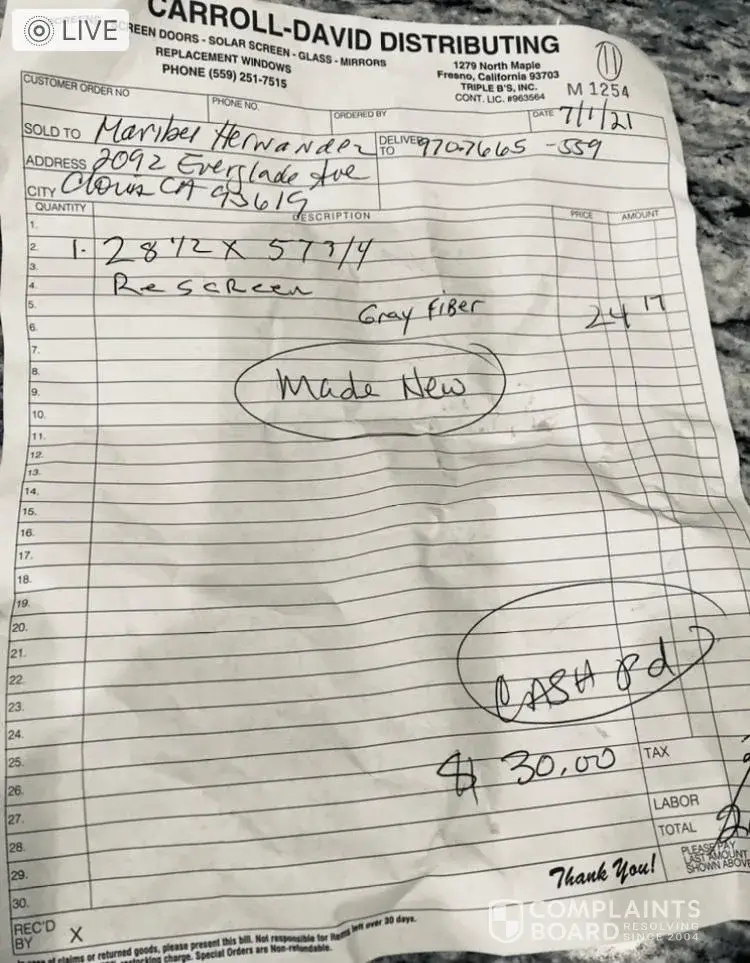 LIVE
CARROLL-DAVID DISTRIBUTING
SCREEN DOORS - SOLAR SCREEN - GLASS - MIRRORS
REPLACEMENT WINDOWS
PHONE (559) 251-7515
1279 North Maple
Fresno, California 93703
TRIPLE B'S, INC.
CONT. LIC. #963564
11
M 1254
CUSTOMER ORDER NO
PHONE NO.
ORDERED BY
DATE 7/1/21
SOLD TO Maribel Hernandez
DELIVER TO 970-7665 -559
ADDRESS 2092 Everglade Ave
CITY Clovis CA 93619
QUANTITY DESCRIPTION PRICE AMOUNT
1.
2. 1. 28 1/2 X 57 3/4
3.
4. Rescreen
5. Gray Fiber 24 17
6.
7.
8. Made New
9.
10.
11.
12.
13.
14.
15.
16.
17.
18.
19.
20.
21.
22. CASH Pd
23.
24.
25. $ 30.00 TAX
26.
27. LABOR
28. TOTAL
PLEASE PAY
LAST AMOUNT
SHOWN ABOVE
29. Thank You!
30.
REC'D BY X
claims or returned goods, please present this bill. Not responsible for items left over 30 days.
charge. Special Orders are Non-refundable.
COMPLAINTS
BOARD RESOLVING SINCE 2004